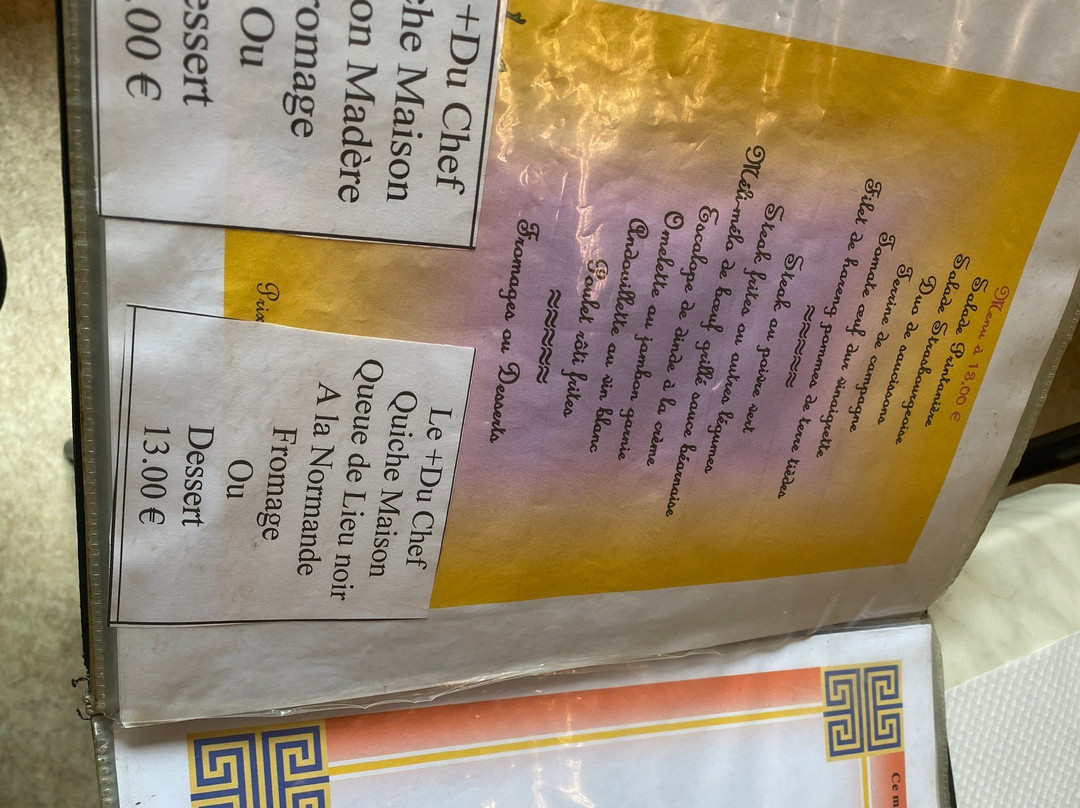 Menu à 13.00 €
Salade Printanière
Salade Strasbourgeoise
Duo de saucissons
Terrine de campagne
Tomate œuf dur vinaigrette
Filet de hareng pommes de terre tièdes
≈≈≈≈≈≈
Steak au poivre vert
Steak frites ou autres légumes
Méli-mélo de bœuf grillé sauce béarnaise
Escalope de dinde à la crème
Omelette au jambon garnie
Andouillette au vin blanc
Poulet rôti frites
≈≈≈≈≈≈≈
Fromages ou Desserts
+Du Chef
che Maison
on Madère
romage
Ou
essert
.00 €
Prix
Le +Du Chef
Quiche Maison
Queue de Lieu noir
A la Normande
Fromage
Ou
Dessert
13.00 €
Ce m